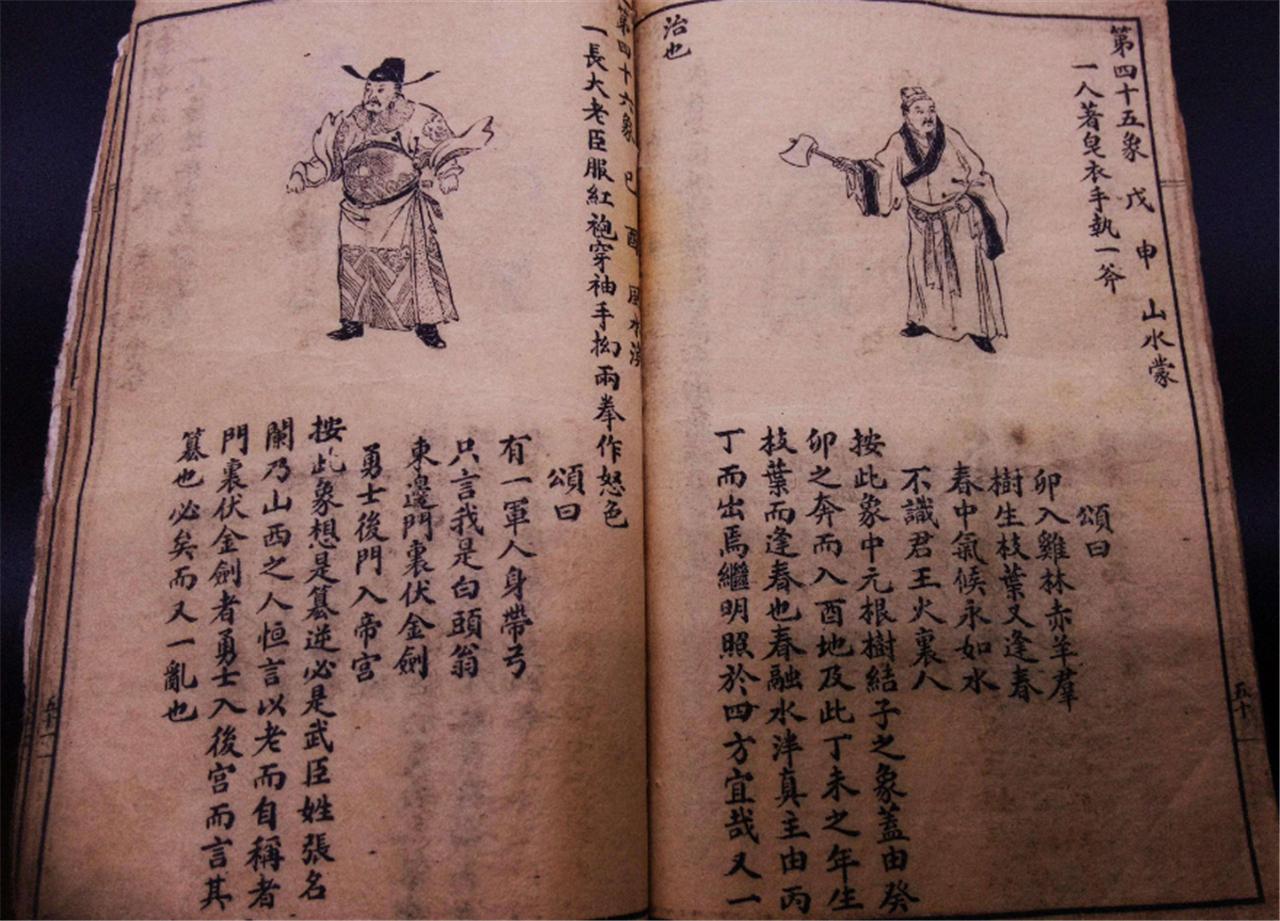 第四十五象 戊申 山水蒙
一人著皂衣手執一斧
頌曰
卯入雞林赤羊羣
樹生枝葉又逢春
春中氣候永如水
不識君王火裏人
按此象中元根樹結子之象蓋由癸
卯之奔而入酉地及此丁未之年生
枝葉而逢春也春融水泮真主由丙
丁而出焉繼明照於四方宜哉又一
治也
五十
第四十六象 巳酉 風水渙
一長大老臣服紅袍穿袖手抝兩拳作怒色
頌曰
有一軍人身帶弓
只言我是白頭翁
東邊門裏伏金劍
勇士後門入帝宮
按此象想是篡逆必是武臣姓張名
闌乃山西之人恒言以老而自稱者
門裏伏金劍者勇士入後宮而言其
篡也必矣而又一亂也
五十一